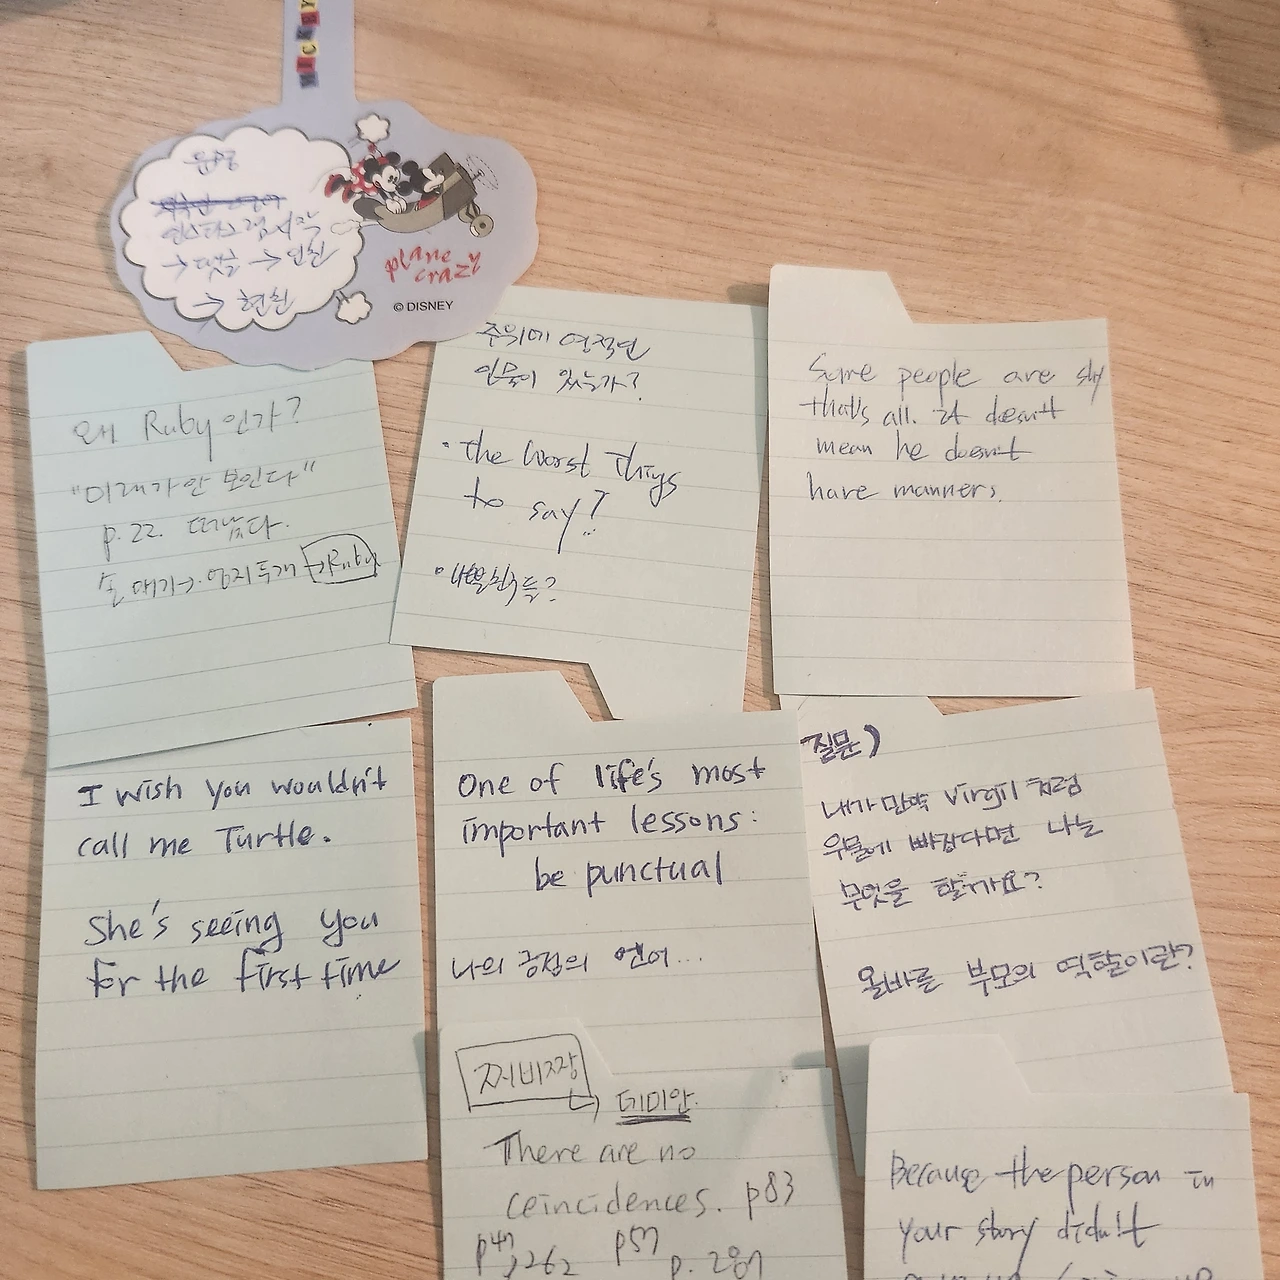 MICKEY
운영
인스타스경시작
→ 댓글 → 인친
→ 현친
plane
crazy
© DISNEY
왜 Ruby 인가?
"미래가 안 보인다"
p.22. 떠났다.
손 대기→ 엄지 두개 → Ruby
주위에 영적인
인물이 있는가?
• the worst things
to say?
• 나쁜친구들?
Some people are shy
that's all. it doesn't
mean he doesn't
have manners.
I wish you wouldn't
call me Turtle.
She's seeing you
for the first time
One of life's most
important lessons:
be punctual
나의 긍정의 언어...
질문)
내가 만약 Virgil 처럼
우물에 빠졌다면 나는
무엇을 할까요?
올바른 부모의 역할이란?
쩌비장
데미안.
There are no
coincidences. p83
p47, 262 p57 p.287
Because the person in
your story didn't